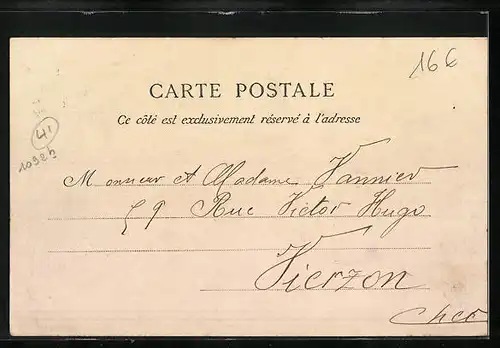 16€
CARTE POSTALE
Ce côté est exclusivement réservé à l'adresse
41
10926
Monsieur et Madame Vannier
59 Rue Victor Hugo
Vierzon
Cher